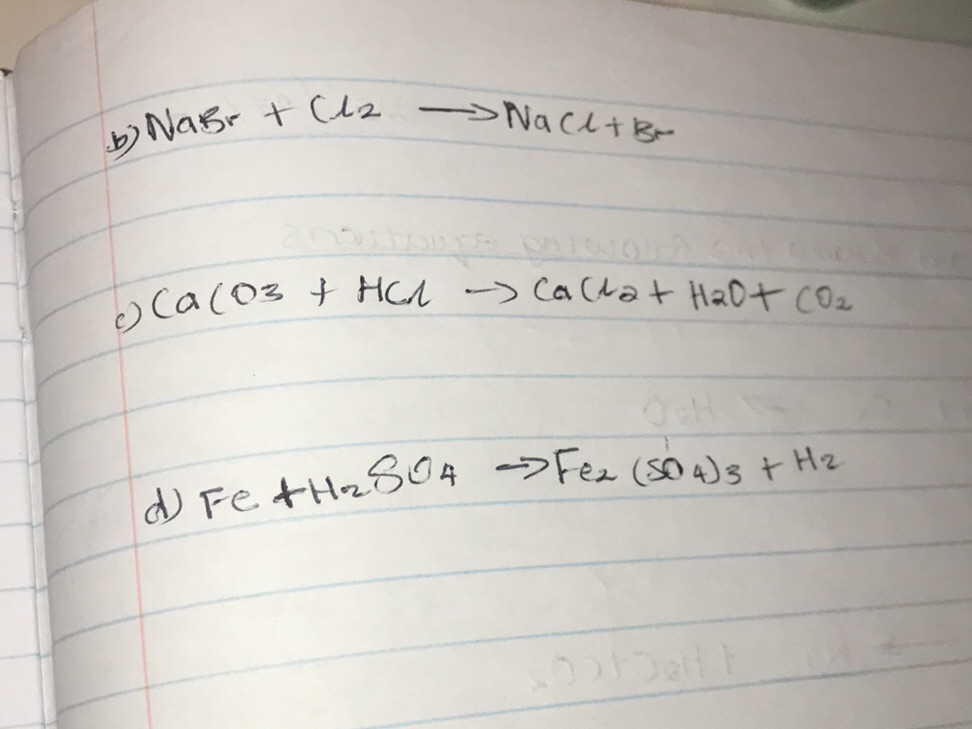 b) NaBr + Cl2 → NaCl + Br
c) CaCO3 + HCl → CaCl2 + H2O + CO2
d) Fe + H2SO4 → Fe2 (SO4)3 + H2